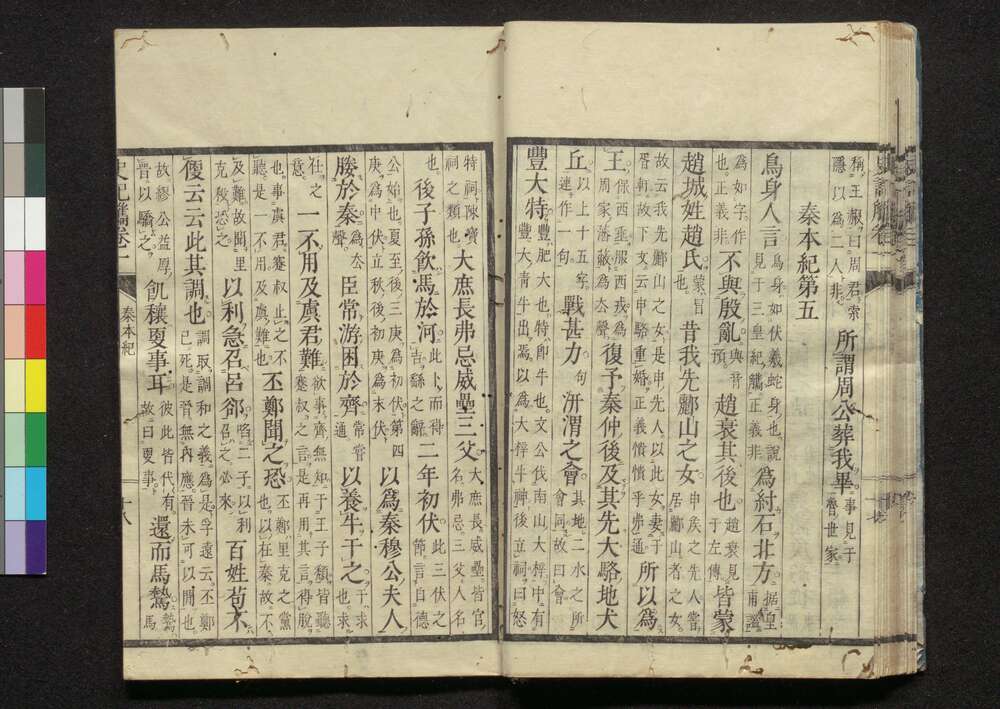 稱王赧曰周君索
隱以爲二人非 所謂周公葬我畢 事見于
魯世家
秦本紀第五
鳥身人言 鳥身如伏羲蛇身也說
見于三皇紀 正義非 爲紂石北方 据皇
甫謐
爲如字作
也正義非 不與殷亂 與音
預 趙衰其後也 趙衰見
于左傳 皆蒙
趙城姓趙氏 蒙冒
也 昔我先酈山之女 申侯之先人當
居酈山者之女
故云我先酈山之女是申先人以此女妻于
胥軒故下文云申駱重婚正義憒憒乎 通 所以爲
王 保西垂服西戎爲
周家藩蔽爲去聲 復予秦仲後及其先大駱地犬
丘 以上十五字
連作一句 戰甚力 句 汧渭之會 其地二水之所
會詞故曰會
豐大特 豐肥大也特卽牛也文公伐南山大梓中有
豐大青牛出焉以爲大梓牛神後立祠曰怒
特祠陳寶
祠之類也 大庶長弗忌威壘三父 大庶長威壘皆官
名弗忌三父人名
也 後子孫飮馬於河 此卜而得
吉繇之辭 二年初伏 此三伏之
節言自德
公始也夏至後三庚爲初伏第四
庚爲中伏立秋後初庚爲末伏 以爲秦穆公夫人
媵於秦 爲去
聲 臣常游困於齊 常嘗
通 以養牛干之 干求
也求
仕之
意 一不用及虞君難 欲事齊無知于王子頹皆聽
蹇叔之言是再用其言得脫
也事虞君蹇叔止之不
聽是一不用及虞難也 丕鄭聞之恐 丕鄭里克之黨
也以在秦故不
及難故聞里
克殺恐之 以利急召呂郤 啗二子以利
召之必來 百姓苟不
便云云此其調也 調取調和之義爲是 孚遠云丕鄭
已死是晉無內應晉未可以圖也
故繆公益厚
晉以驕之 飢穰更事耳 彼此皆代有
故曰更事 還而馬騺 騺馬
史記 卷一
秦本紀
十八